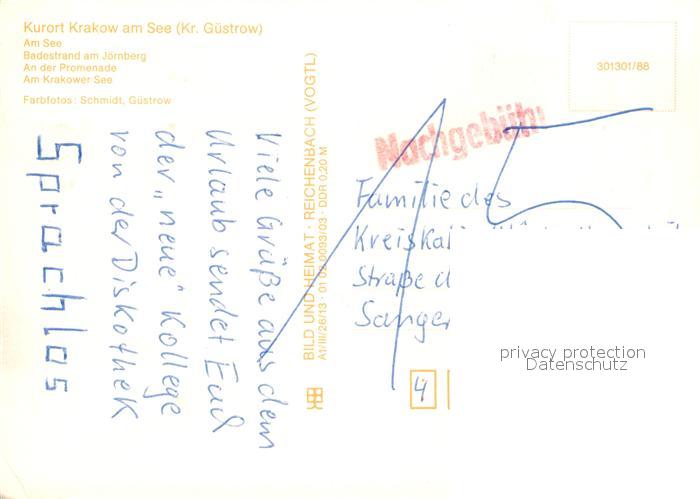 Kurort Krakow am See (Kr. Güstrow)
Am See
Badestrand am Jörnberg
An der Promenade
Am Krakower See
Farbfotos: Schmidt, Güstrow
301301/88
Nachgebühr
Viele Grüße aus dem
Urlaub sendet Euch
der „neue" Kollege
von der Diskothek
Sprachlos
BILD UND HEIMAT · REICHENBACH (VOGTL)
A1/III/26/13 · 01 02 0093/03 · DDR 0,20 M
Familie des
Kreiskal
Straße d
Sanger
4
privacy protection
Datenschutz